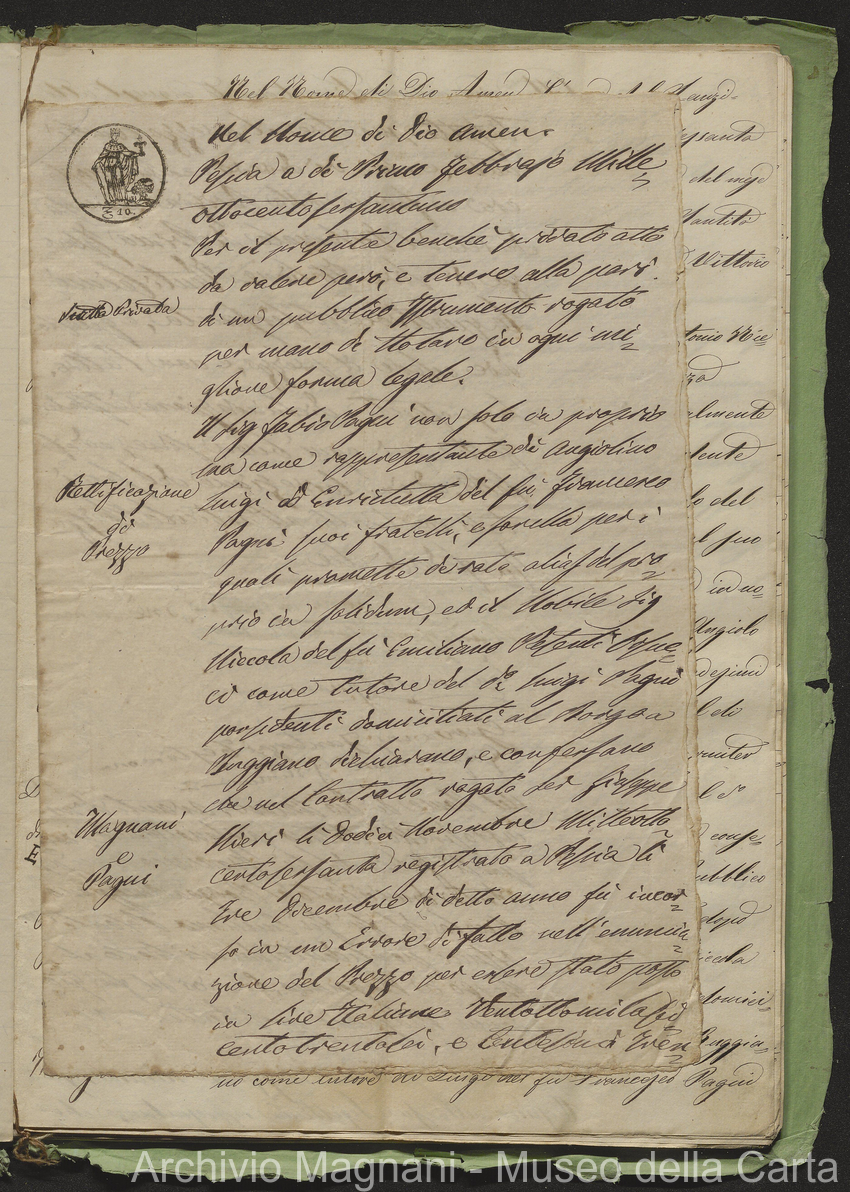 Nel Nome di Dio Amen
Nel Nome di Dio Amen.
Pescia a dì Primo Febbrajo Mille=
ottocentosessantuno
Per il presente benchè privato atto
da valere però, e tenere alla pari
di un pubblico Istrumento rogato
per mano di Notaro in ogni mi=
gliore forma legale.
Scritta Privata
Il Sig Fabio Pagni non solo in proprio
ma come rappresentante di Angiolino
Luigi ed Enrichetta del fù Francesco
Pagni suoi fratelli, e sorella per i
quali promette de rato alias del pro=
prio in solidum, ed il Nobile Sig
Niccola del fù Emiliano
ci come tutore del do Luigi Pagni
possidenti domiciliati al Borgo a
Buggiano dichiarano, e confessano
che nel Contratto rogato Ser Giuseppe
Nieri li dodici Novembre Milleotto=
centosessanta registrato a Pescia li
tre Dicembre di detto anno fù incor=
so in un Errore di fatto nell'enuncia=
zione del Prezzo per essere stato posto
in Lire Italiane Ventottomila
centotrentasei, e Centesimi Tren=
Rettificazione
di
Prezzo
Magnani
e
Pagni
no come tutore di Luigi del fù Francesco Pagni
Vittorio
almente
lo del
al suo
Angiolo
ubblico
dopo
icola
domici=
Buggia=
10
Archivio Magnani - Museo della Carta